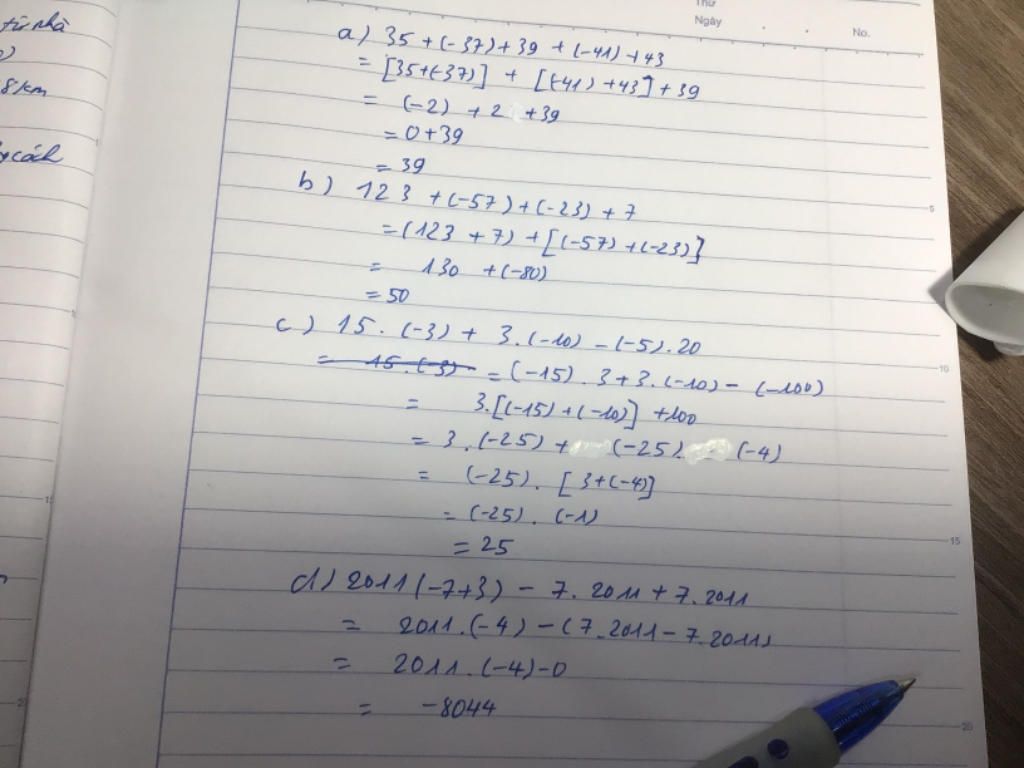 từ nhà
8km
cách
Thứ
Ngày
No.
a) 35 + (-37) + 39 + (-41) + 43
= [35+(-37)] + [(-41) + 43] + 39
= (-2) + 2 + 39
= 0 + 39
= 39
b) 123 + (-57) + (-23) + 7
= (123 + 7) + [(-57) + (-23)]
= 130 + (-80)
= 50
c) 15. (-3) + 3. (-10) - (-5). 20
= 15. (-3) = (-15). 3 + 3. (-10) - (-100)
= 3. [(-15) + (-10)] + 100
= 3. (-25) + (-25). (-4)
= (-25). [3 + (-4)]
= (-25). (-1)
= 25
d) 2011 (-7+3) - 7. 2011 + 7. 2011
= 2011. (-4) - (7. 2011 - 7. 2011)
= 2011. (-4) - 0
= -8044
5
10
15
20